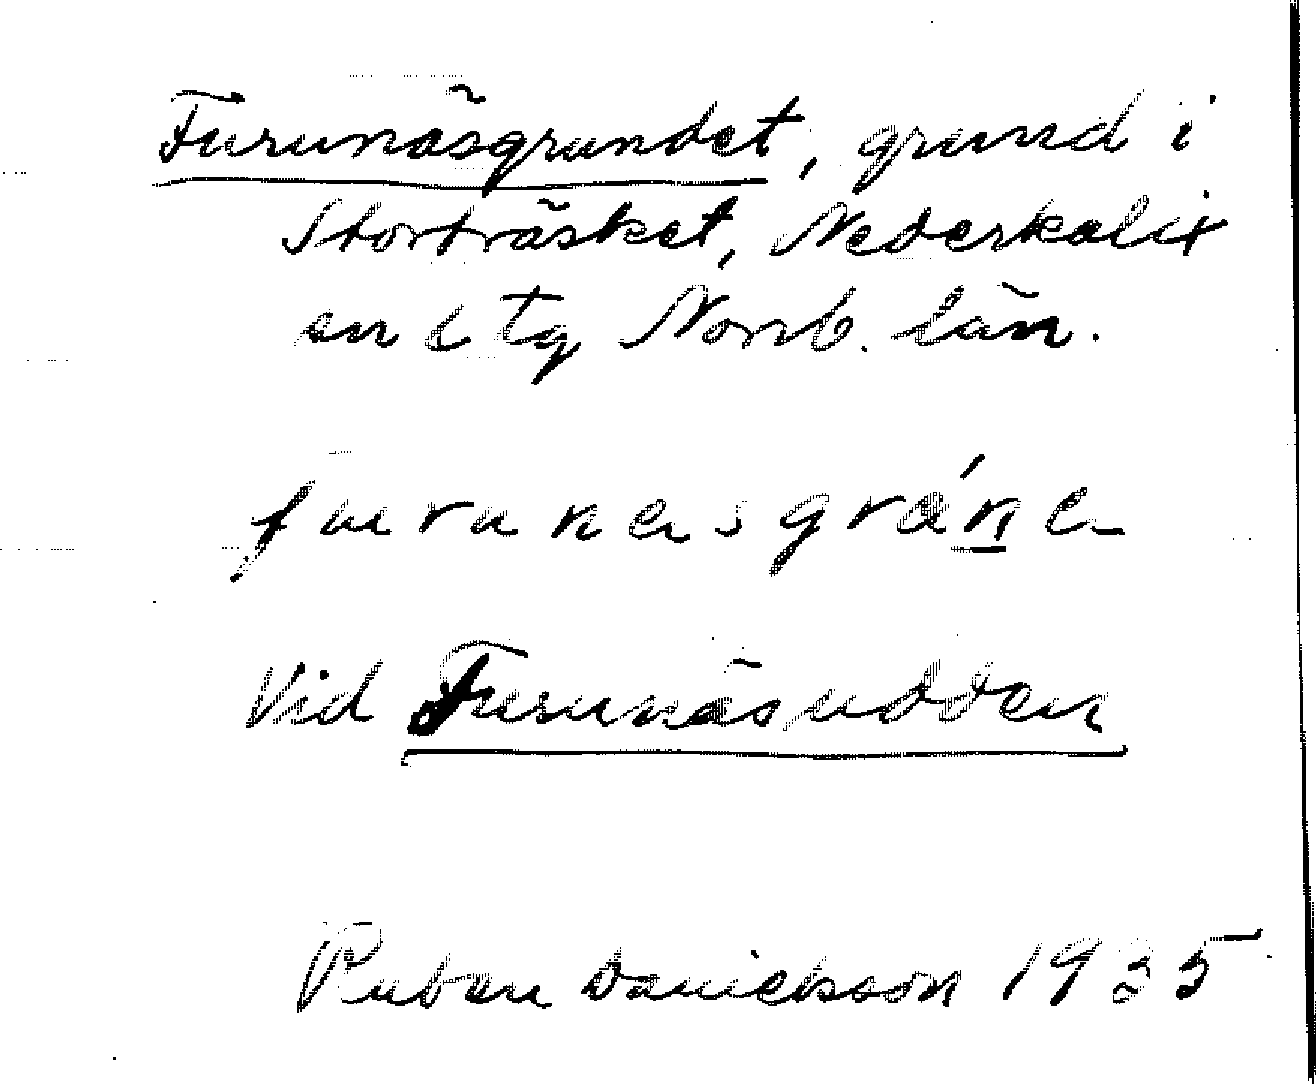 Furunäsgrundet, grund i
Storträsket, Nederkalix
sn o tg Norrb. län.
furunesgrǻne
Vid Furunäsudden
Ruben Danielsson 1935